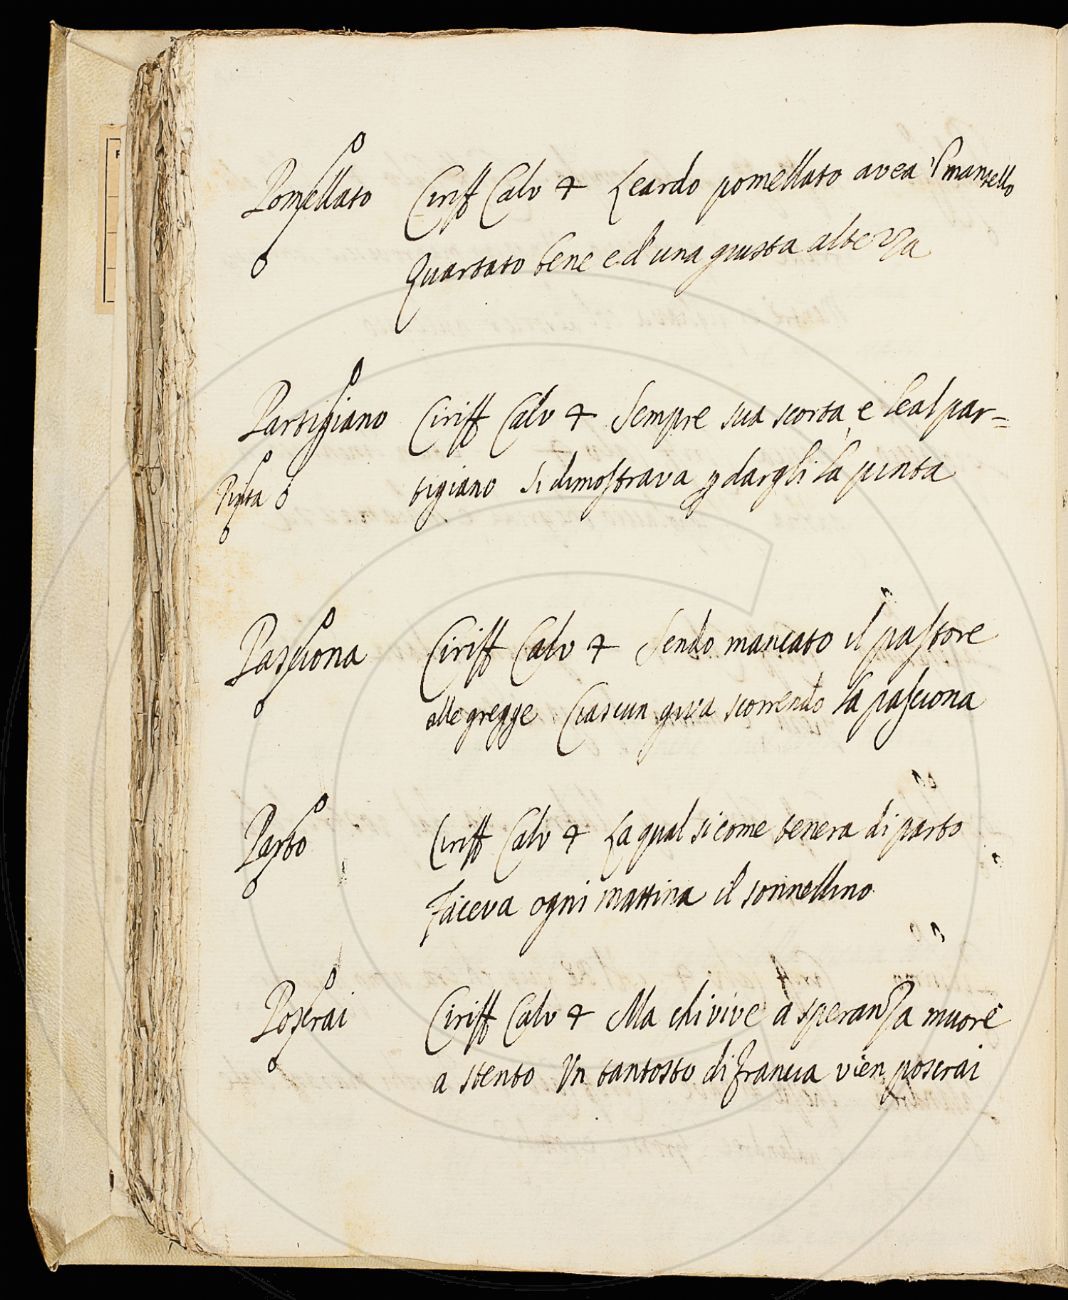 Pomellato Ciriff Calv 4 Leardo pomellato avea 'l mantello
Quartato bene e d'una giusta altezza
Partigiano Ciriff Calv 4 Sempre sua scorta, e leal par=
Punta tigiano Si dimostrava p dargli la punta
Pasciona Ciriff Calv 4 Sendo mancato il pastore
alle gregge Ciascun giva scorrendo la pasciona
Parto Ciriff Calv 4 La qual sicome tenera di parto
Faceva ogni mattina il sonnellino
Poserai Ciriff Calv 4 Ma chi vive a speranza muore
a stento Un tantosto di francia vien poserai